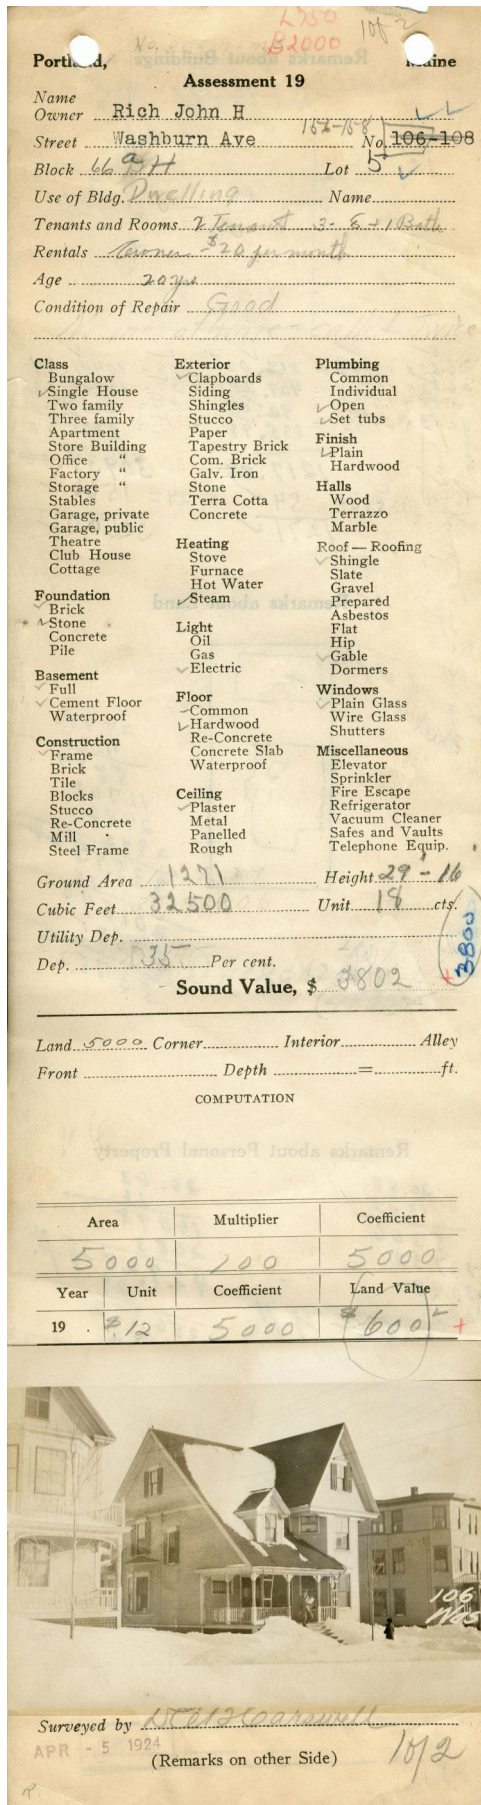 L750
B2000
1 of 2
Portland, Maine
Assessment 19
Name
Owner Rich John H
156-158
Street Washburn Ave No. 106-108
Block 66a Lot 5
Use of Bldg. Dwelling Name
Tenants and Rooms 2 Tenant 3- 8 + 1 Bath
Rentals Owner - $20 per month
Age 20 yrs
Condition of Repair Good
Class
Bungalow
Single House
Two family
Three family
Apartment
Store Building
Office "
Factory "
Storage "
Stables
Garage, private
Garage, public
Theatre
Club House
Cottage
Foundation
Brick
Stone
Concrete
Pile
Basement
Full
Cement Floor
Waterproof
Construction
Frame
Brick
Tile
Blocks
Stucco
Re-Concrete
Mill
Steel Frame
Exterior
Clapboards
Siding
Shingles
Stucco
Paper
Tapestry Brick
Com. Brick
Galv. Iron
Stone
Terra Cotta
Concrete
Heating
Stove
Furnace
Hot Water
Steam
Light
Oil
Gas
Electric
Floor
Common
Hardwood
Re-Concrete
Concrete Slab
Waterproof
Ceiling
Plaster
Metal
Panelled
Rough
Plumbing
Common
Individual
Open
Set tubs
Finish
Plain
Hardwood
Halls
Wood
Terrazzo
Marble
Roof — Roofing
Shingle
Slate
Gravel
Prepared
Asbestos
Flat
Hip
Gable
Dormers
Windows
Plain Glass
Wire Glass
Shutters
Miscellaneous
Elevator
Sprinkler
Fire Escape
Refrigerator
Vacuum Cleaner
Safes and Vaults
Telephone Equip.
Ground Area 1271 Height 29 - 16
Cubic Feet 32500 Unit 18 cts.
Utility Dep.
Dep. 35 Per cent.
3800
Sound Value, $ 3802
Land 5000 Corner Interior Alley
Front Depth = ft.
COMPUTATION
Area Multiplier Coefficient
5000 100 5000
Year Unit Coefficient Land Value
19 . $.12 5000 $600
106
Was
Surveyed by
APR - 5 1924
(Remarks on other Side)
1 of 2
R.